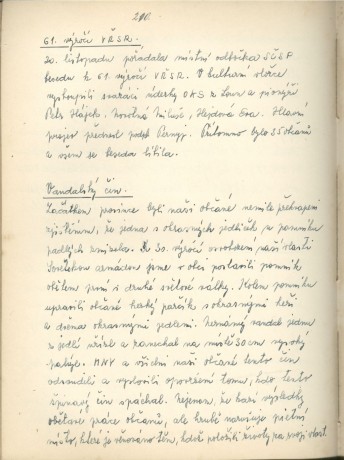 210.
61. výročí VŘSR.
20. listopadu pořádala místní odbočka SČSP
besedu k 61. výročí VŘSR. V kulturní vložce
vystoupili svazáci úderky OKS z Loun a pionýři
Petr Hájek, Novotná Miluš, Hejdová Eva. Hlavní
projev přednesl podpl. Přítomno bylo 55 občanů
a všem se beseda líbila.
Vandalský čin.
Začátkem prosince byli naši občané nemile překvapeni
zjištěním, že jedna z okrasných jedliček u pomníku
padlých zmizela. K 30. výročí osvobození naší vlasti
Sovětskou armádou jsme v obci postavili pomník
obětem první i druhé světové války. Kolem pomníku
upravili občané hezký parčík s okrasnými keři
a dvěma okrasnými jedlemi. Neznámý vandal jednu
z jedlí uřízl a zanechal na místě 50 cm vysoký
pařez. MNV a všichni naši občané tento čin
odsoudili a vyslovili opovržení tomu, kdo tento
špinavý čin spáchal. Nejenom, že kazí výsledky
obětavé práce občanů, ale hrubě narušuje pietní
místo, které je věnováno těm, kdož položili životy za svoji vlast.